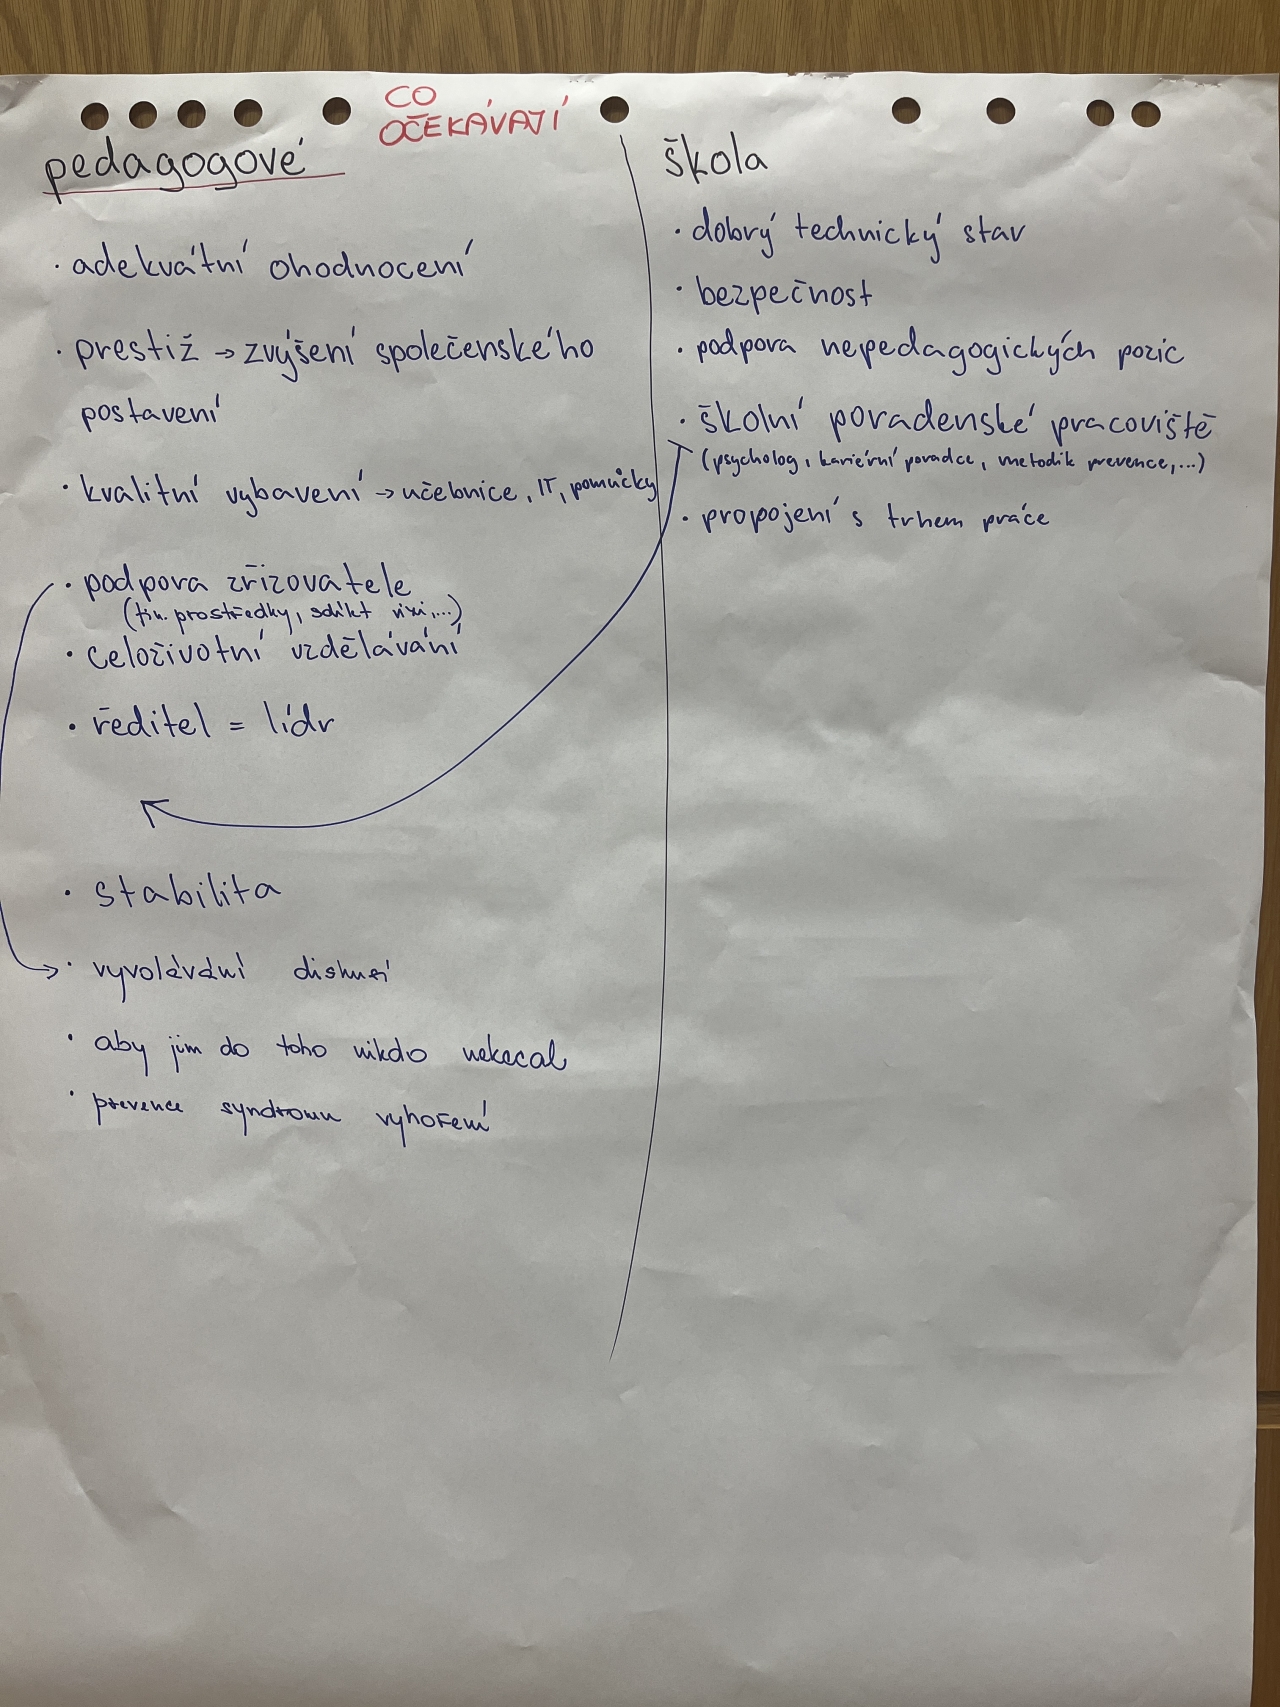 CO
OČEKÁVAJÍ
pedagogové
· adekvátní ohodnocení
· prestiž → zvýšení společenského
postavení
· kvalitní vybavení → učebnice, IT, pomůcky
· podpora zřizovatele
(fin. prostředky, sdílet vizi,...)
· celoživotní vzdělávání
· ředitel = lídr
· stabilita
· vyvolávání diskusí
· aby jim do toho nikdo nekecal
· prevence syndromu vyhoření
škola
· dobrý technický stav
· bezpečnost
· podpora nepedagogických pozic
· školní poradenské pracoviště
(psycholog, kariérní poradce, metodik prevence,...)
· propojení s trhem práce